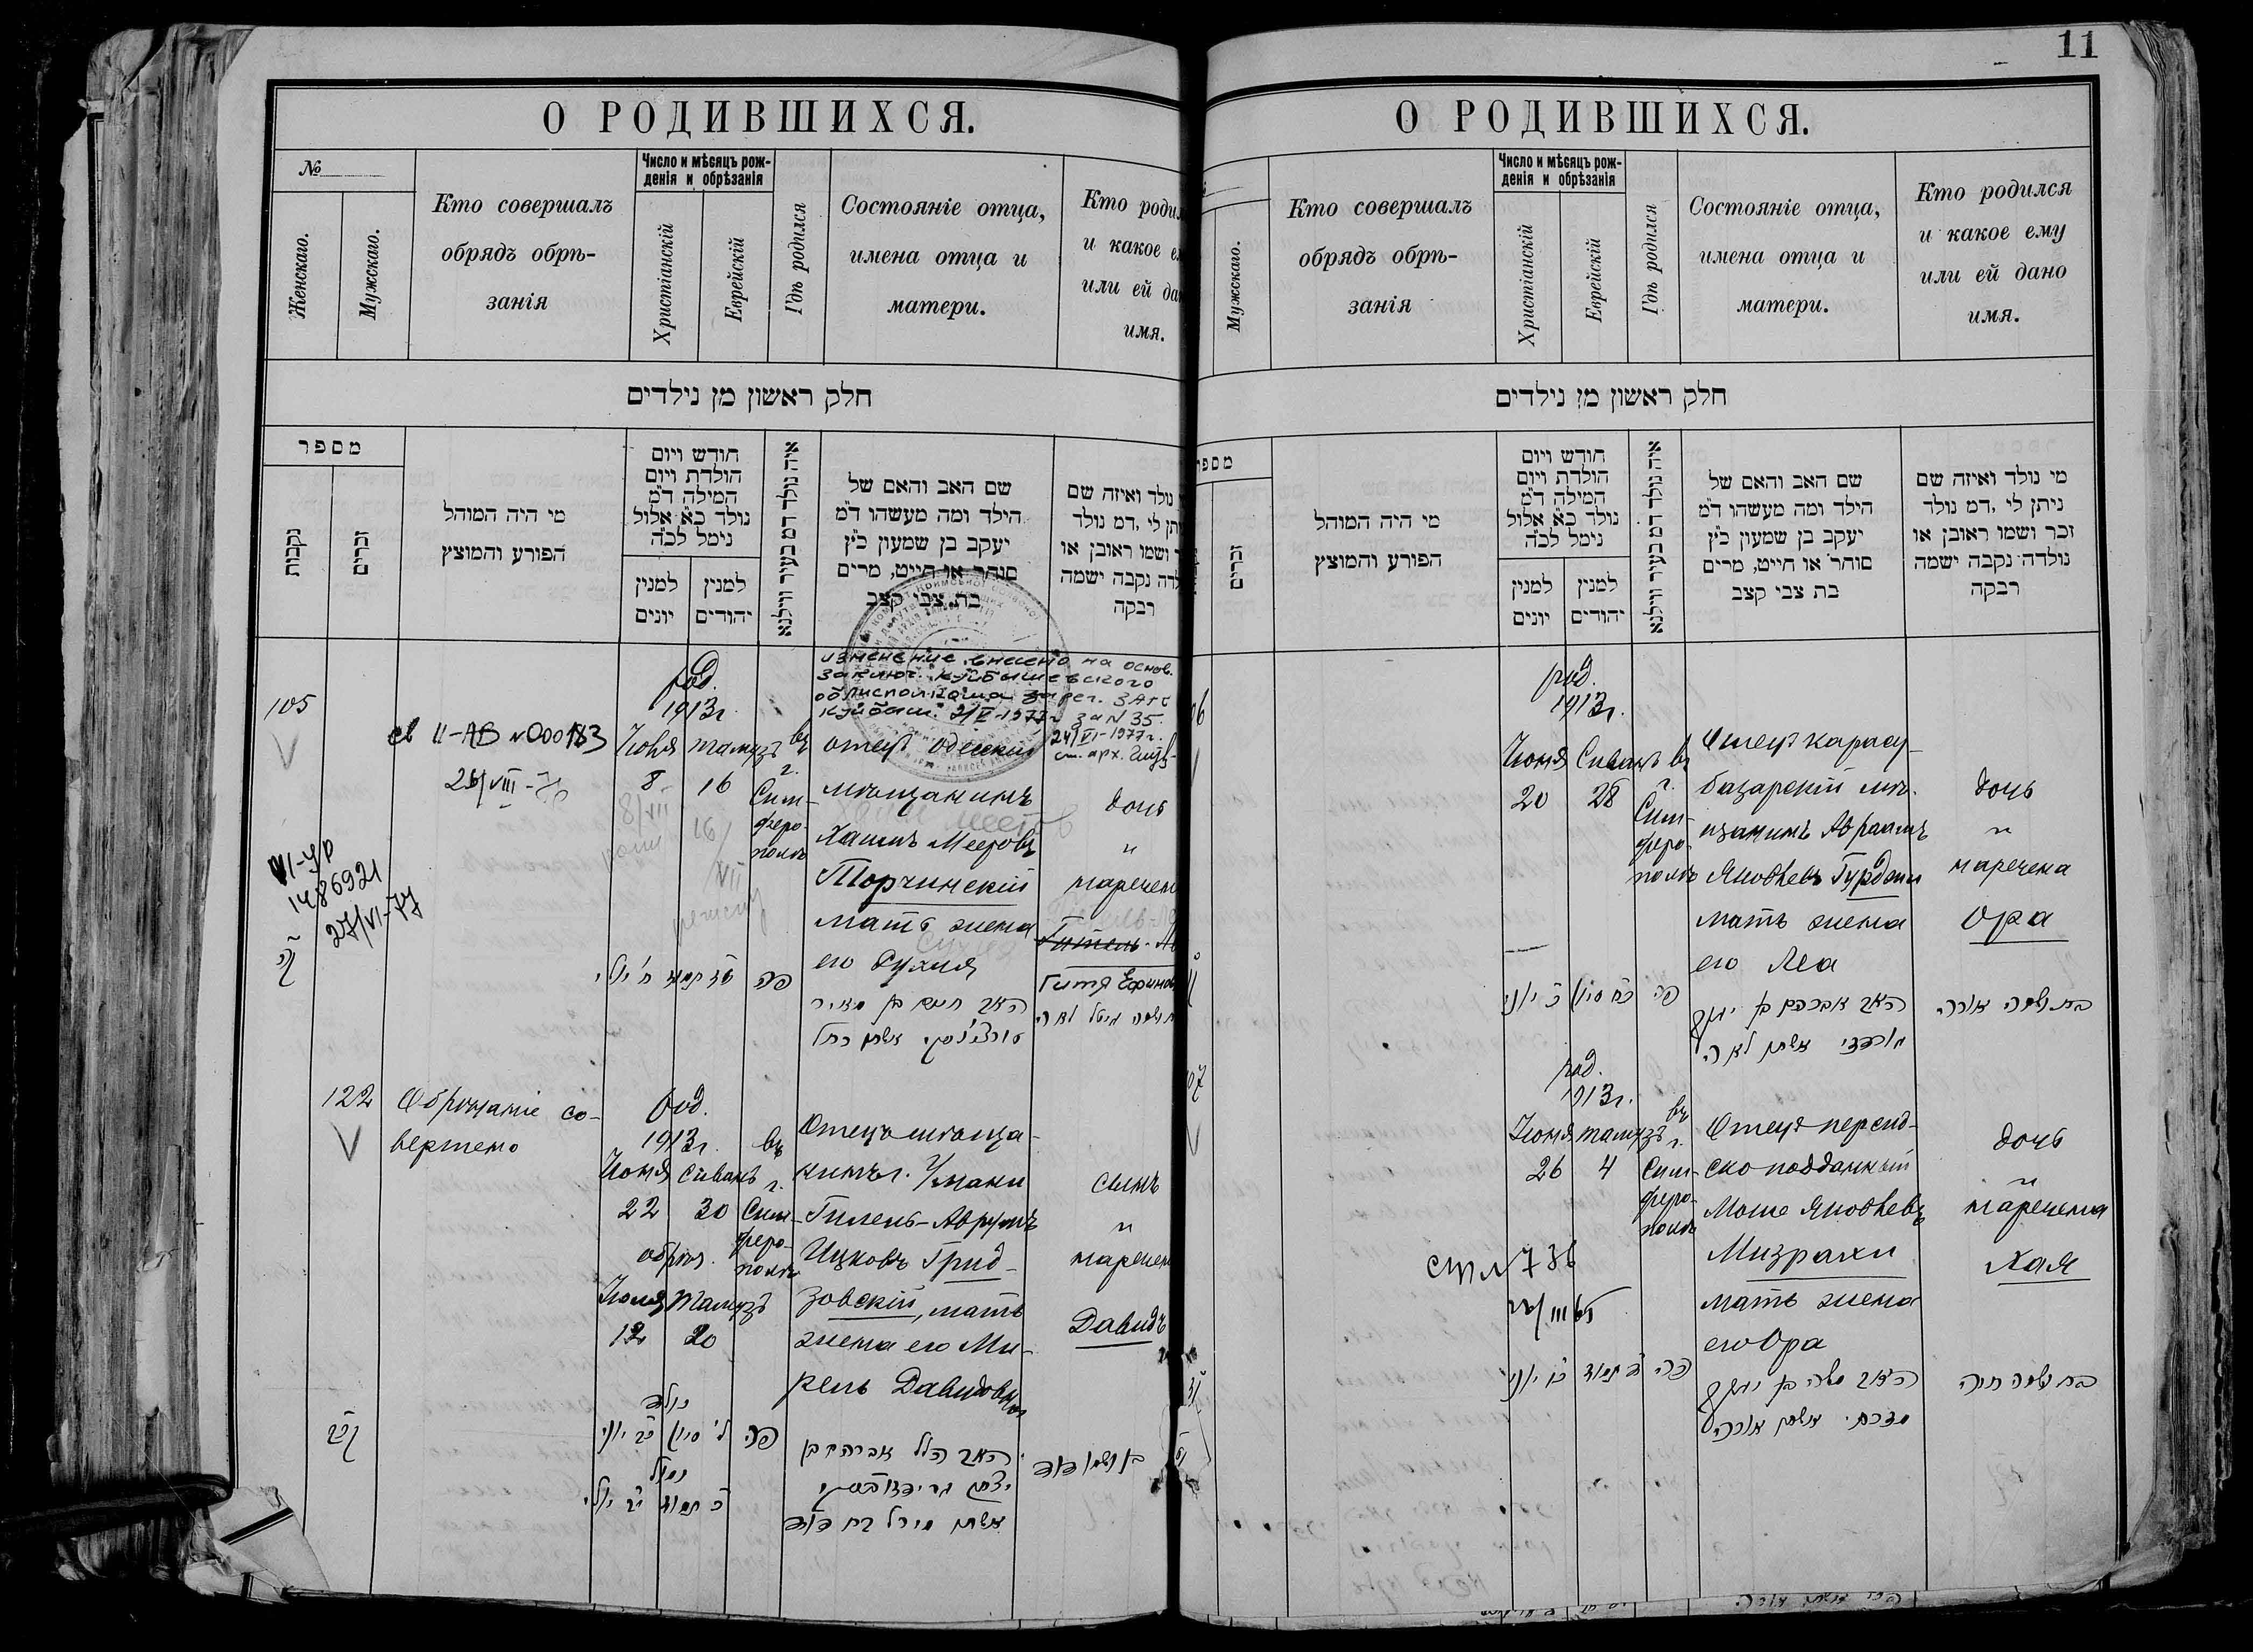 О РОДИВШИХСЯ.
№
Женскаго.
Мужскаго.
Кто совершалъ
обрядъ обрѣ-
занія
Число и мѣсяцъ рож-
денія и обрѣзанія
Христіанскій
Еврейскій
Гдѣ родился
Состояніе отца,
имена отца и
матери.
Кто роди
и какое е
или ей да
имя.
חלק ראשון מן נילדים
מספר
נקבות
זכרים
מי היה המוהל
הפורע והמוצץ
חודש ויום
הולדת ויום
המילה ד"מ
נולד כ"א אלול
נימל לכ"ה
למנין
יונים
למנין
יהודים
איה נולד דמ בעיר ווילנא
שם האב והאם של
הילד ומה מעשהו ד"מ
יעקב בן שמעון כ"ץ
סוחר או חייט, מרים
בת צבי קצב
נולד ואיזה שם
יתן לי ,דמ נולד
ר ושמו ראובן או
לדה נקבה ישמה
רבקה
105
св II-АВ №000183
26/VIII-
VI-УР
1486921
27/VI-77
род.
1913г.
Іюля тамузъ въ
8 16 г.
Сим-
феро-
полѣ
изменение внесено на основ.
заключ. Куйбышевского
облисполкома зарег. ЗАГС
Куйбыш. 21/VI-1977г за N 35.
24/VI-1977г.
ст. арх.
отецъ одесскій
мѣщанинъ
Хаимъ Мееровъ
Торчинскій
мать жена
его Рухля
дочь
"
наречен
Гитель-
Гитя Ефимов
פה
האב חיים בן מאיר
טורצינסקי אשתו רחל
122
Обрѣзаніе со-
вершено
род.
1913г. въ
Іюня Сиванъ г.
22 30 Сим-
феро-
полѣ
обрѣз.
Іюля Тамузъ
12 20
Отецъ мѣща-
нинъ г. Умани
Гилель-Аврумъ
Ицковъ Грид-
зовскій, мать
жена его Ми-
рель Давидовна
сынъ
"
наречен
Давидъ
נולד
ל' סיון כ"ב יוני
פה
נמול
כ' תמוז י"ב יולי
האב הלל אברהם בן
יצחק
אשתו מירל בת דוד
בן ושמו דוד
11
О РОДИВШИХСЯ.
Мужскаго.
Кто совершалъ
обрядъ обрѣ-
занія
Число и мѣсяцъ рож-
денія и обрѣзанія
Христіанскій
Еврейскій
Гдѣ родился
Состояніе отца,
имена отца и
матери.
Кто родился
и какое ему
или ей дано
имя.
חלק ראשון מן נילדים
מספר
זכרים
מי היה המוהל
הפורע והמוצץ
חודש ויום
הולדת ויום
המילה ד"מ
נולד כ"א אלול
נימל לכ"ה
למנין
יונים
למנין
יהודים
איה נולד דמ בעיר ווילנא
שם האב והאם של
הילד ומה מעשהו ד"מ
יעקב בן שמעון כ"ץ
סוחר או חייט, מרים
בת צבי קצב
מי נולד ואיזה שם
ניתן לי ,דמ נולד
זכר ושמו ראובן או
נולדה נקבה ישמה
רבקה
06
род.
1913г.
Іюня Сиванъ въ
20 28 г.
Сим-
феро-
полѣ
Отецъ карасу-
базарскій мѣ-
щанинъ Авраамъ
Яковлевъ Гурджи
мать жена
его Леа
дочь
"
наречена
Ора
כ' יוני
כ"ח סיון
פה
האב אברהם בן יעקב
גורדזי אשתו לאה
בת ושמה אורה
07
род.
1913г.
Іюня тамузъ въ г.
26 4 Сим-
феро-
полѣ
Отецъ персид-
ско подданный
Моше Яковлевъ
Мизрахи
мать жена
его Ора
дочь
"
наречена
Хая
פה
האב משה בן יעקב
מזרחי אשתו אורה
בת ושמה חיה